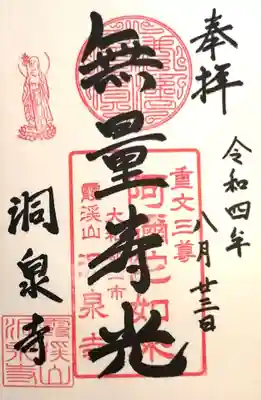 奉拝
令和四年
八月廿三日
無量寿光
重文三尊
阿彌陀如来
大和
市
霊渓山
泉寺
洞泉寺
霊渓山
洞泉寺